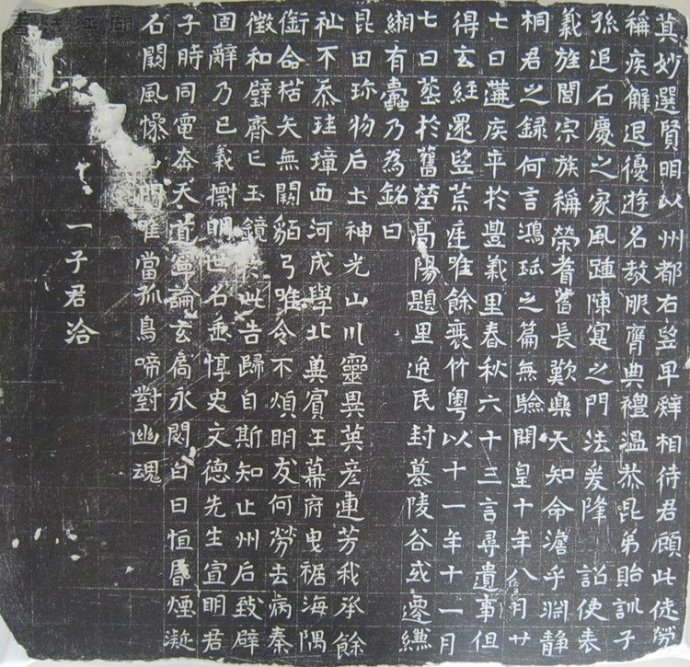 其妙選賢明以州都右望早辟相待君顧此徒勞
稱疾解退優遊名教服膺典禮溫恭昆弟貽訓子
孫追石慶之家風踵陳寔之門法爰降 詔使表
義旌閭宗族稱榮耆舊長歎樂天知命澹乎淵静
桐君之録何言鴻珎之篇無驗開皇十年八月廿
七日遘疾卒於豐義里春秋六十三言尋遺事但
得玄經還監荒庭唯餘叢竹粤以十一年十一月
七日葬於舊塋高陽題里逸民封墓陵谷或遷縑
緗有蠹乃為銘曰
昆田珎物后土神光山川靈異英彦連芳我承餘
祉不忝珪璋西河成學北冀賓王幕府曳裾海隅
銜命楛矢無闕貊弓唯令不煩明友何勞去病秦
徵和璧齊亡玉鏡 此告歸自斯知止州后致辟
固辭乃已義 明世名垂惇史文德先生宣明君
子時同電奔天道寧論玄扃永閟白日恒昏煙凝
石闕風燥 門隺當孤鳥啼對幽魂
一子君洽